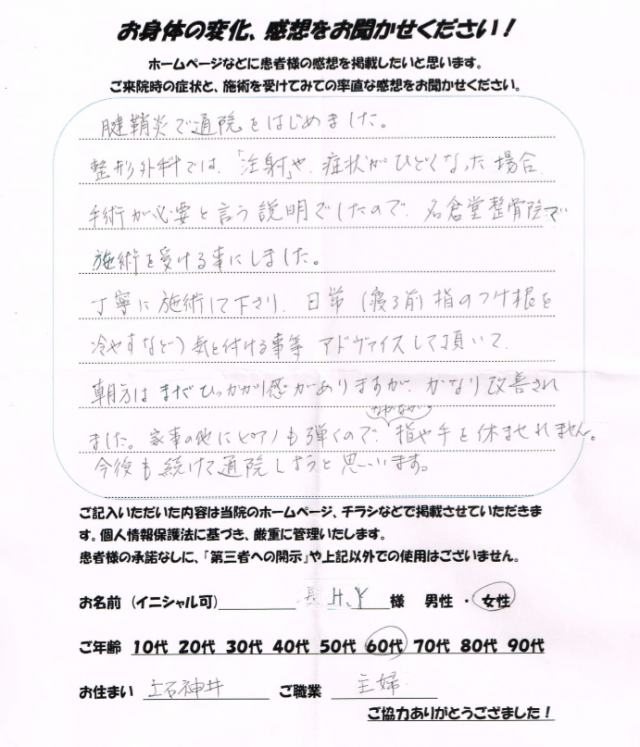 お身体の変化、感想をお聞かせください！
ホームページなどに患者様の感想を掲載したいと思います。
ご来院時の症状と、施術を受けてみての率直な感想をお聞かせください。
腱鞘炎で通院をはじめました。
整形外科では、「注射」や、症状がひどくなった場合
手術が必要と言う説明でしたので、名倉堂整骨院で
施術を受ける事にしました。
丁寧に施術して下さり、日常（寝る前）指のつけ根を
冷やすなど）気を付ける事等 アドヴァイスして頂いて、
朝方はまだひっかかり感がありますが、かなり改善され
ました。家事の他にピアノも弾くので、指や手を休ませれません。
今後も続けて通院しようと思います。
ご記入いただいた内容は当院のホームページ、チラシなどで掲載させていただきま
す。個人情報保護法に基づき、厳重に管理いたします。
患者様の承諾なしに、「第三者への開示」や上記以外での使用はございません。
お名前（イニシャル可） H.Y 様 男性 ・ 女性
ご年齢 10代 20代 30代 40代 50代 60代 70代 80代 90代
お住まい 上石神井 ご職業 主婦
ご協力ありがとうございました！